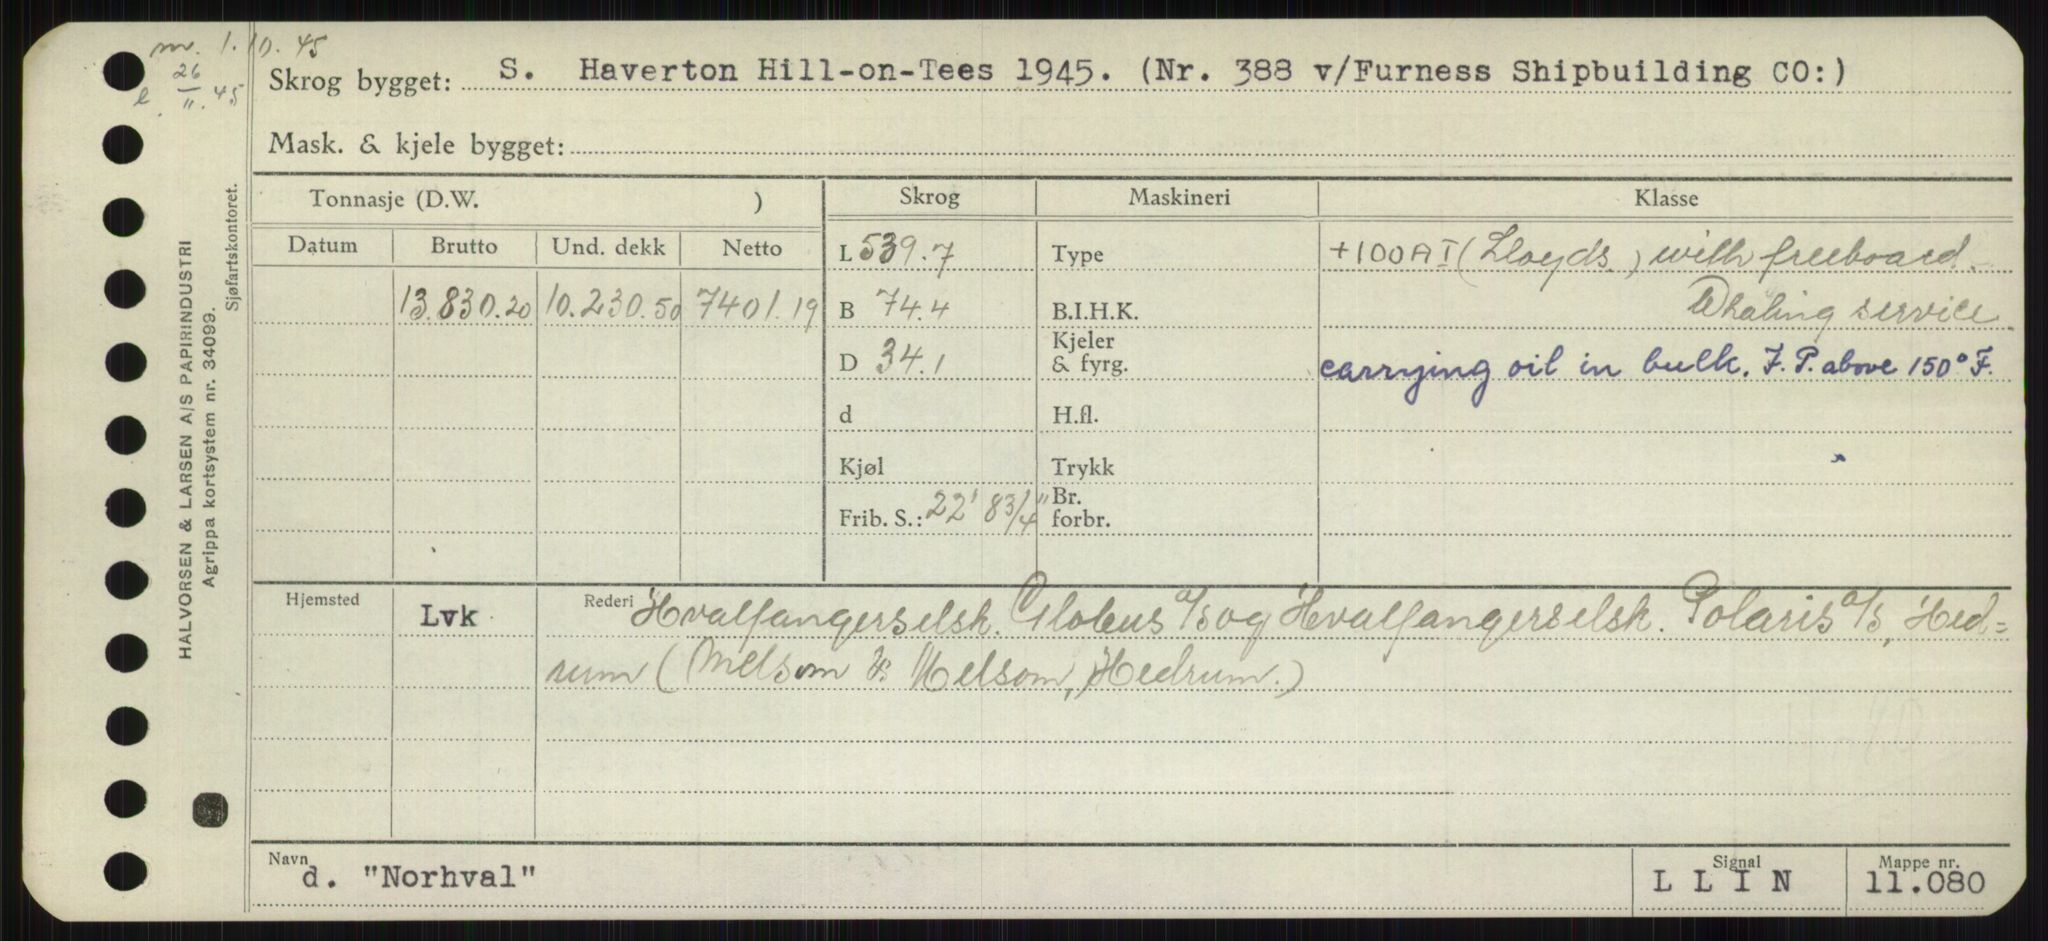 m. 1.10.45
e 26/11.45
Skrog bygget: S. Haverton Hill-on-Tees 1945. (Nr. 388 v/Furness Shipbuilding CO:)
Mask. & kjele bygget:
Tonnasje (D.W. ) Skrog Maskineri Klasse
Datum Brutto Und. dekk Netto L 539.7 Type +100AI (Lloyds) with freeboard.
13.830.20 10.230.50 7401.19 B 74.4 B.I.H.K. Whaling service
D 34.1 Kjeler & fyrg. carrying oil in bulk. F.P. above 150° F.
d H.fl.
Kjøl Trykk
Frib. S.: 22' 8 3/4" Br. forbr.
Hjemsted Lvk Rederi Hvalfangerselsk. Globus a/s og Hvalfangerselsk. Polaris a/s, Hed=
rum (Melsom & Melsom, Hedrum.)
Navn d. "Norhval" Signal L L I N Mappe nr. 11.080
HALVORSEN & LARSEN A/S PAPIRINDUSTRI
Agrippa kortsystem nr. 34099.
Sjøfartskontoret.